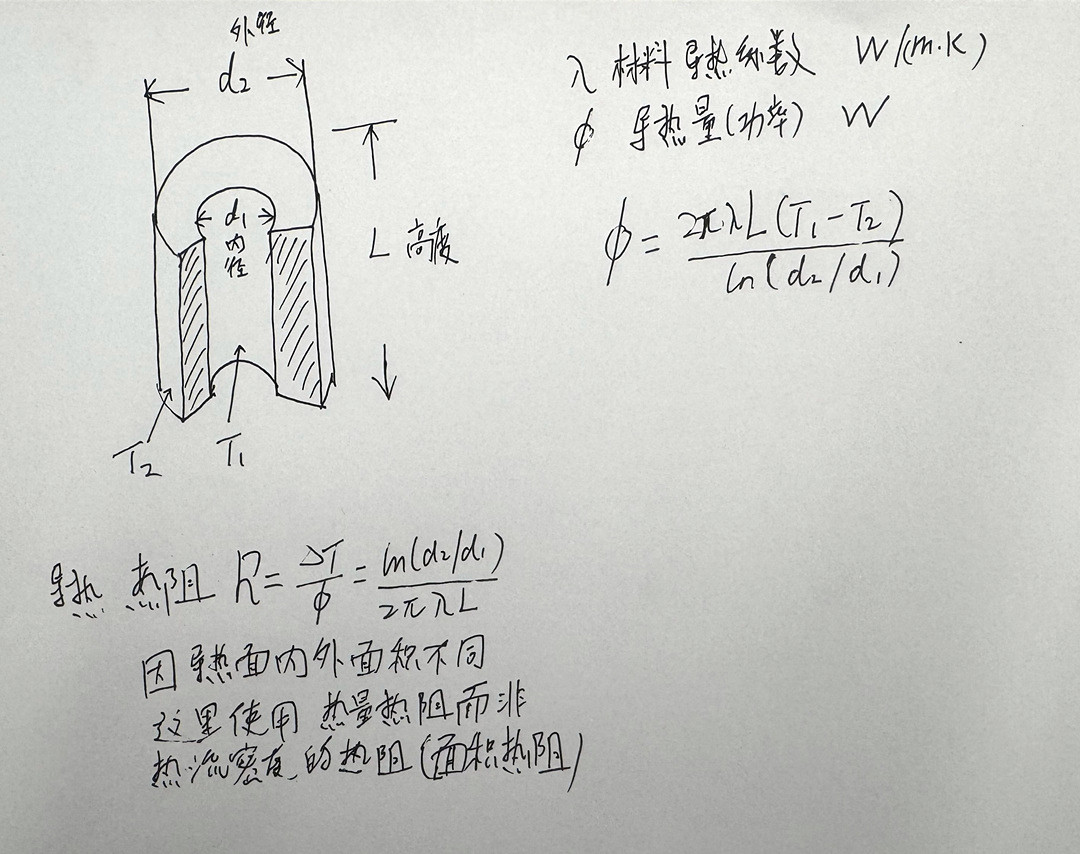 外径
d₂
d₁
内
径
L 高度
T₂
T₁
λ 材料导热系数 W/(m·K)
ϕ 导热量(功率) W
ϕ = 2πλL(T₁-T₂) / ln(d₂/d₁)
导热 热阻 R = ΔT/ϕ = ln(d₂/d₁) / 2πλL
因导热面内外面积不同
这里使用热量热阻而非
热流密度的热阻(面积热阻)